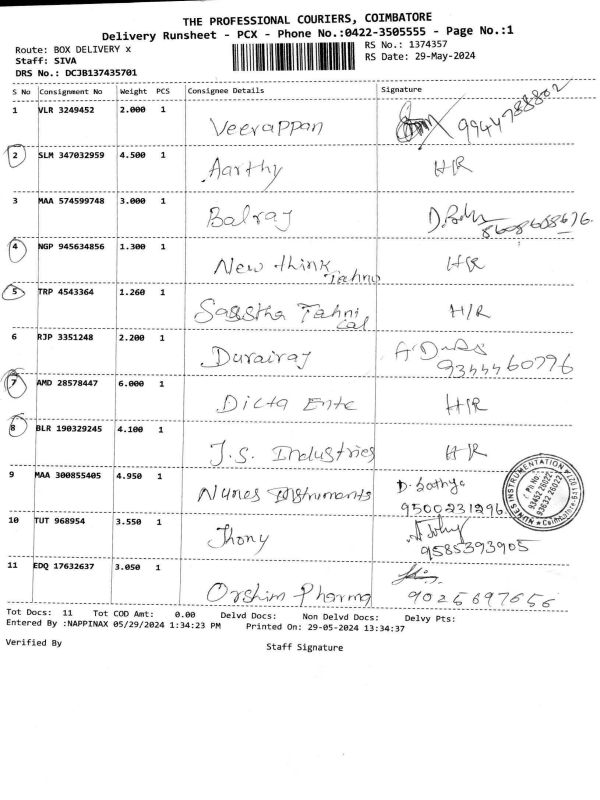 THE PROFESSIONAL COURIERS, COIMBATORE
Delivery Runsheet - PCX - Phone No.:0422-3505555 - Page No.:1
Route: BOX DELIVERY x
RS No.: 1374357
Staff: SIVA
RS Date: 29-May-2024
DRS No.: DCJB137435701
S No Consignment No Weight PCS Consignee Details Signature
1 VLR 3249452 2.000 1 Veerappan 9944788802
2 SLM 347032959 4.500 1 Aarthy H/R
3 MAA 574599748 3.000 1 Balraj
4 NGP 945634856 1.300 1 New think Techno H/R
5 TRP 4543364 1.260 1 H/R
6 RJP 3351248 2.200 1 Durairaj
9344460796
7 AMD 28578447 6.000 1 Dicta Ente H/R
8 BLR 190329245 4.100 1 J.S. Industries H/R
9 MAA 300855405 4.950 1 Nunes Instruments D. Sathya
9500231296
NUNES INSTRUMENTATION
Ph No.
93452 26022
93632 26022
10 TUT 968954 3.550 1 Jhony
9585393905
11 EDQ 17632637 3.050 1 Orshim Pharma 9025697656
Tot Docs: 11 Tot COD Amt: 0.00 Delvd Docs: Non Delvd Docs: Delvy Pts:
Entered By :NAPPINAX 05/29/2024 1:34:23 PM Printed On: 29-05-2024 13:34:37
Verified By
Staff Signature